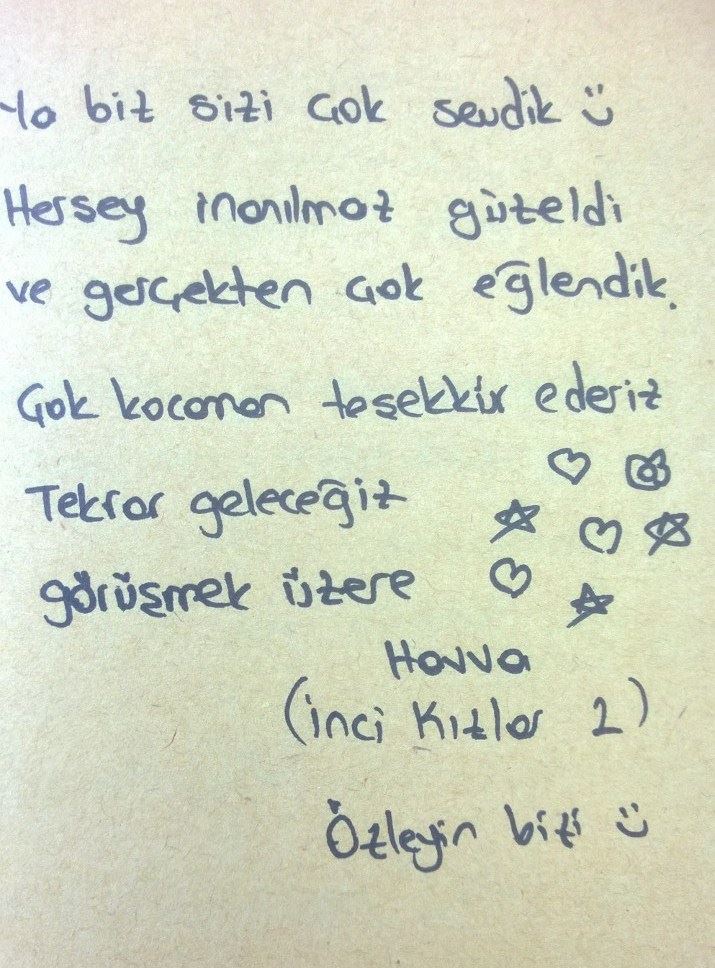 Ya biz sizi çok sevdik :)
Herşey inanılmaz güzeldi
ve gerçekten çok eğlendik.
Çok kocaman teşekkür ederiz
Tekrar geleceğiz
görüşmek üzere
Havva
(inci Kızlar 2)
Özleyin bizi :)